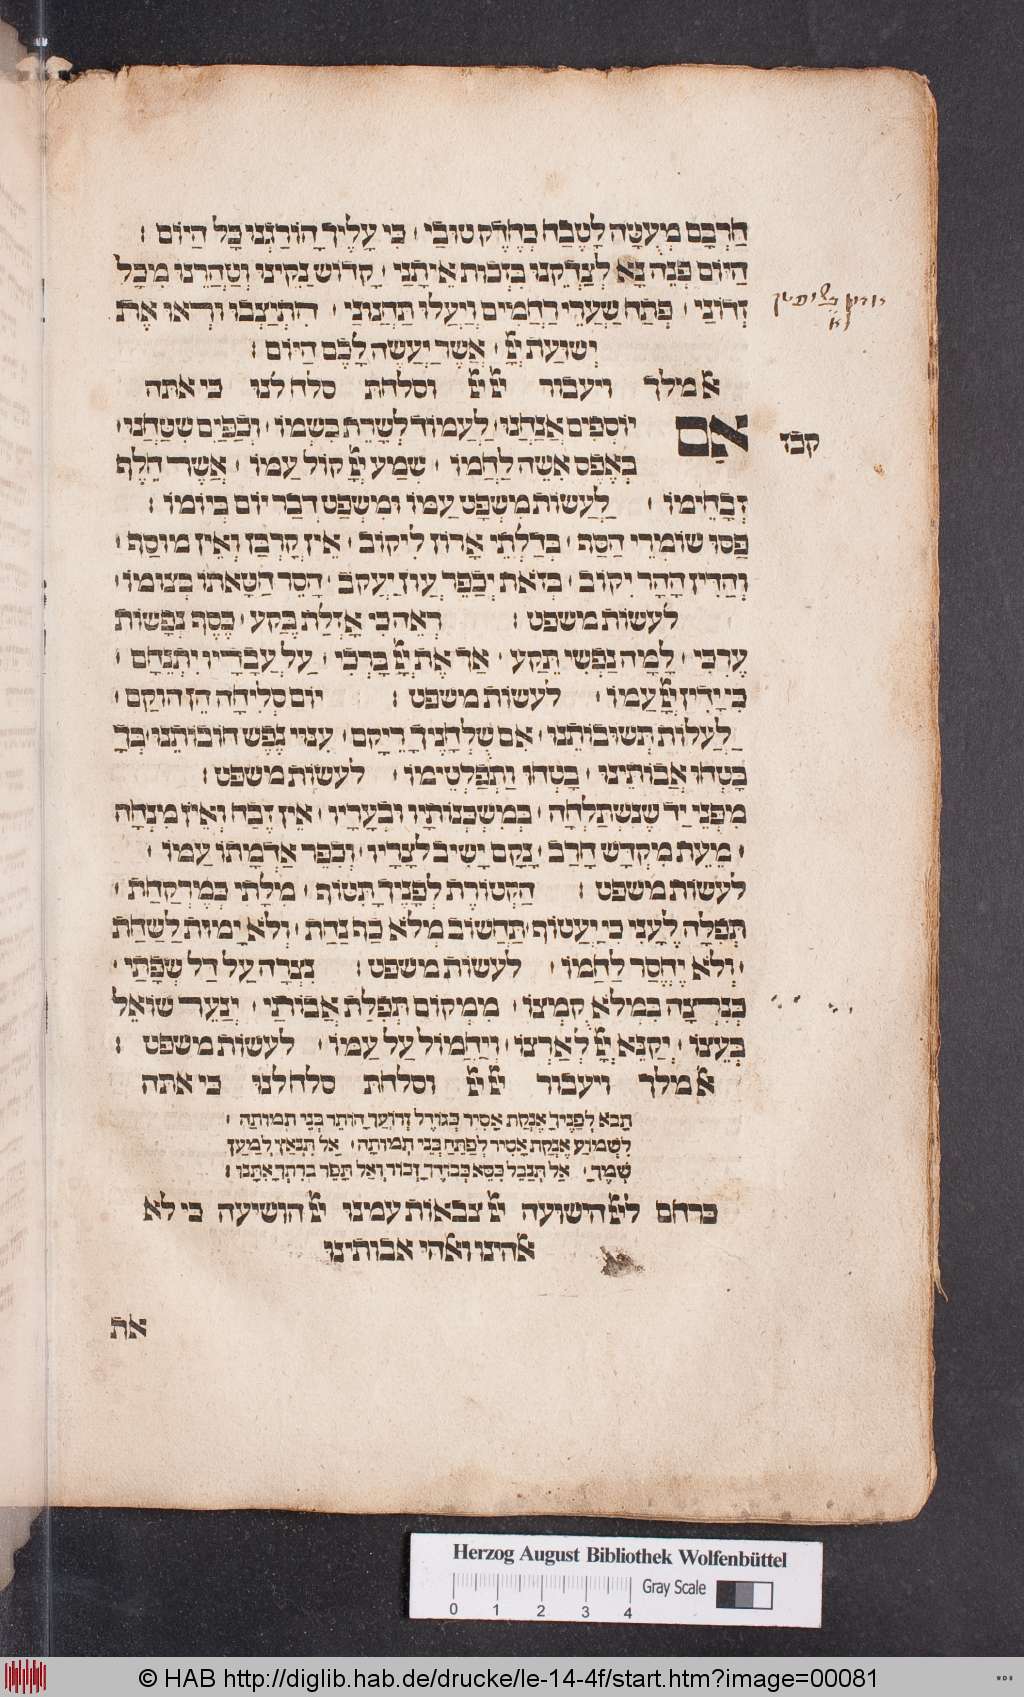 הדרכם מעשה לטבח בחרק טובי · כי עליך הורגנו כל היום :
היום פנה נא לצדקנו בזכות איתני · קדוש נקינו וטהרנו מכל
זדוני · פתח שערי רחמים ויעלו תחנוני · התיצבו וראו את
ישועת יי · אשר יעשה לכם היום :
א מלך ויעבור יי יי וסלחת סלח לנו כי אתה
קכז
אם יוספים אנחנו · לעמוד לשרת בשמו · וכפים שטחנו ·
באפס אשה לחמו · שמע יי קול עמו · אשר חלף
זבחימו · לעשות משפט עמו ומשפט דבר יום ביומו :
פסו שומרי הסף · בדלתי ארוז ליקוב · אין קרבן ואין מוסף ·
והדין ההר יקוב · בזאת יכפר עון יעקב · חסר חטאתו בצומו ·
לעשות משפט : ראה כי אזלת בקע · כסף נפשות
ערכי · למה נפשי תקע · אך את יי ברכי · על עבדיו יתנחם ·
כי ידין יי עמו · לעשות משפט : יום סליחה הן הוקם ·
לעלות תשובותנו · אם שלחניך ריקם · ענוי נפש חובותנו · בך
בטחו אבותינו · בטחו ותפלטימו · לעשות משפט :
מפני יד שנשתלחה · במשכנותיו ובעריו · אין זבח ואין מנחה
· מעת מקדש חרב · נקם ישיב לצריו · וכפר אדמתו עמו ·
לעשות משפט : הקטורת לפניך תטוף · מלתי כמרקחת ·
תפלה לעני כי יעטוף · תחשוב מלא כף נחת · ולא ימות לשחת
· ולא יחסר לחמו · לעשות משפט : נצרה על דל שפתי ·
כנרצה כמלא קמצו · ממקום תפלת אבותי · ינער שואל
בעצו · יקנא יי לארצו · ויחמול על עמו · לעשות משפט :
א מלך ויעבור יי יי וסלחת סלח לנו כי אתה
תבא לפניך אנקת אסיר כגודל זרועך הותר בני תמותה ·
לשמוע אנקת אסיר לפתח בני תמותה · אל תנאץ למען
שמך · אל תנבל כסא כבודך זכור ואל תפר בריתך אתנו :
כרחם ליי הישועה יי צבאות עמינו יי הושיעה כי לא
אהינו ואהי אבותינו
את
Herzog August Bibliothek Wolfenbüttel
Gray Scale
0 1 2 3 4
© HAB http://diglib.hab.de/drucke/le-14-4f/start.htm?image=00081